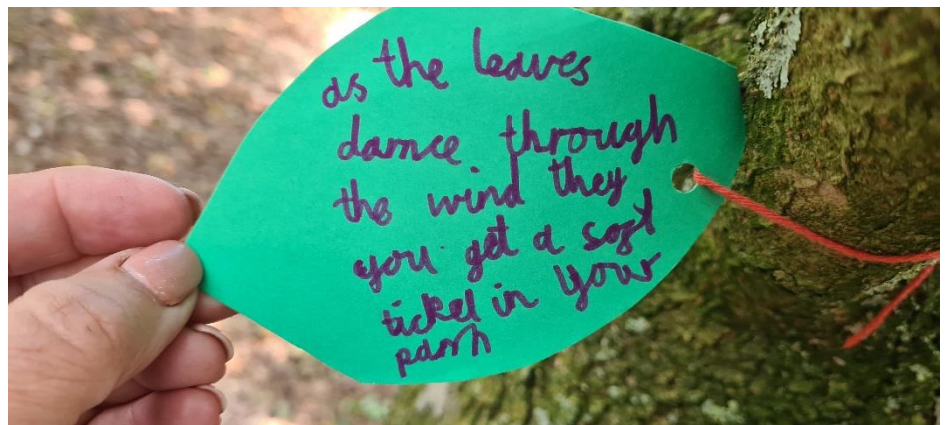 as the leaves
damce through
the wind they
you get a soft
tickel in your
parm